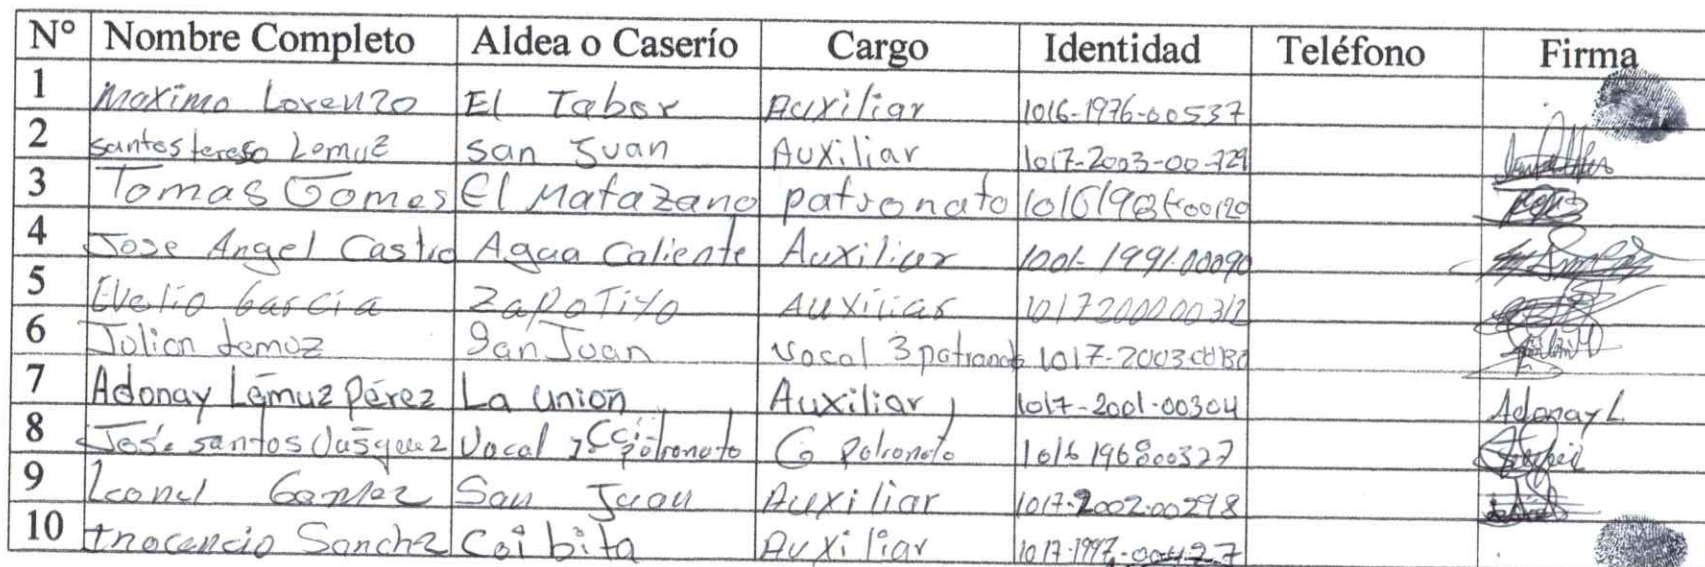 N° Nombre Completo Aldea o Caserío Cargo Identidad Teléfono Firma
1 Maximo Lorenzo El Tabor Auxiliar 1016-1976-00537
2 santos tereso Lemuz san Juan Auxiliar 1017-2003-00329
3 Tomas Gomes El Matazano patronato
4 Jose Angel Castro Agua Caliente Auxiliar 1001-1991-00090
5 Evelio Garcia ZapoTiyo Auxiliar 1017200000312
6 Julion Lemuz San Juan Vocal 3 1017-2003
7 Adonay Lémuz Pérez La union Auxiliar 1017-2001-00304 Adonay L
8 José santos Vasquez Vocal patronato patronato 1016196800327
9 Leonel San Juan Auxiliar 1017-2002-00298
10 Inocencio Sanchz Coibita Auxiliar 1017-1997-00427